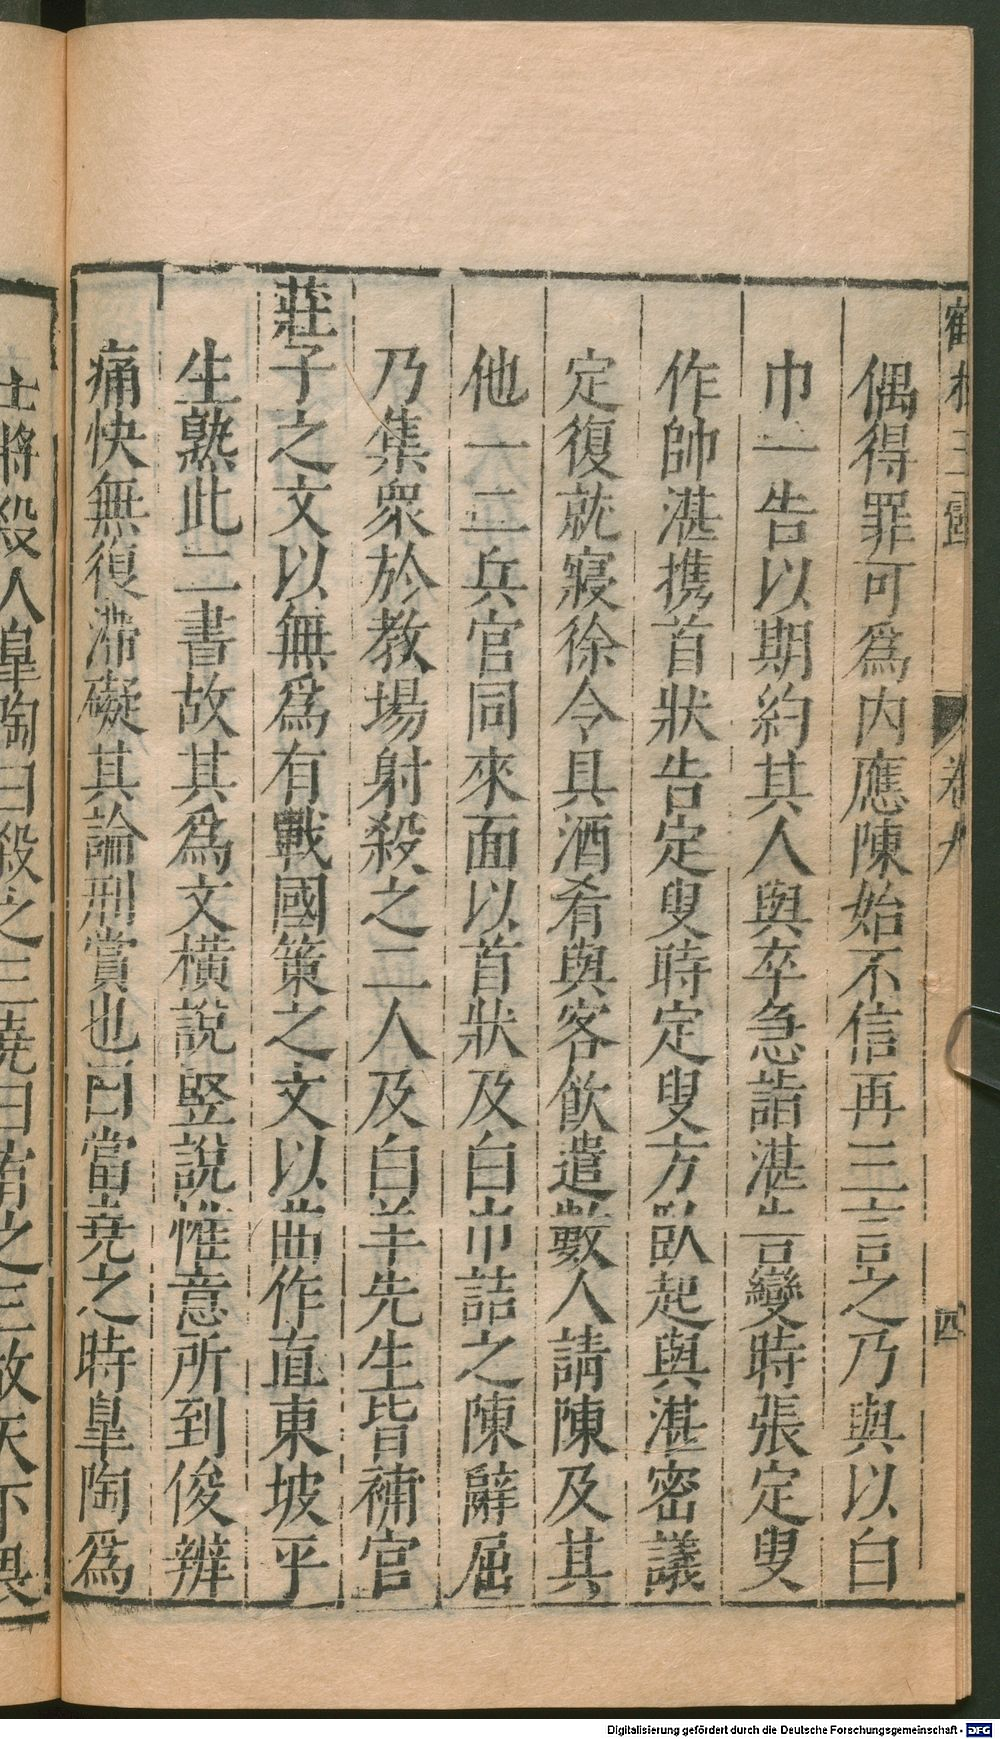 鶴林玉露 卷九 四
偶得罪可爲内應陳始不信再三言之乃與以白
巾一告以期約其人與卒急詣湛告變時張定叟
作帥湛携首狀告定叟時定叟方臥起與湛密議
定復就寢徐令具酒肴與客飲遣數人請陳及其
他一二兵官同來面以首狀及白巾詰之陳辭屈
乃集衆於教場射殺之二人及白羊先生皆補官
莊子之文以無爲有戰國策之文以曲作直東坡平
生熟此二書故其爲文橫說竖說惟意所到俊辨
痛快無復滯礙其論刑賞也曰當堯之時皐陶爲
士將殺人皐陶曰殺之三堯曰宥之三故天下畏
Digitalisierung gefördert durch die Deutsche Forschungsgemeinschaft - DFG